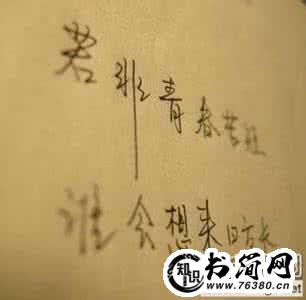 若非青春苦短
谁会想来日方长
知识 书简网
www.76380.cn